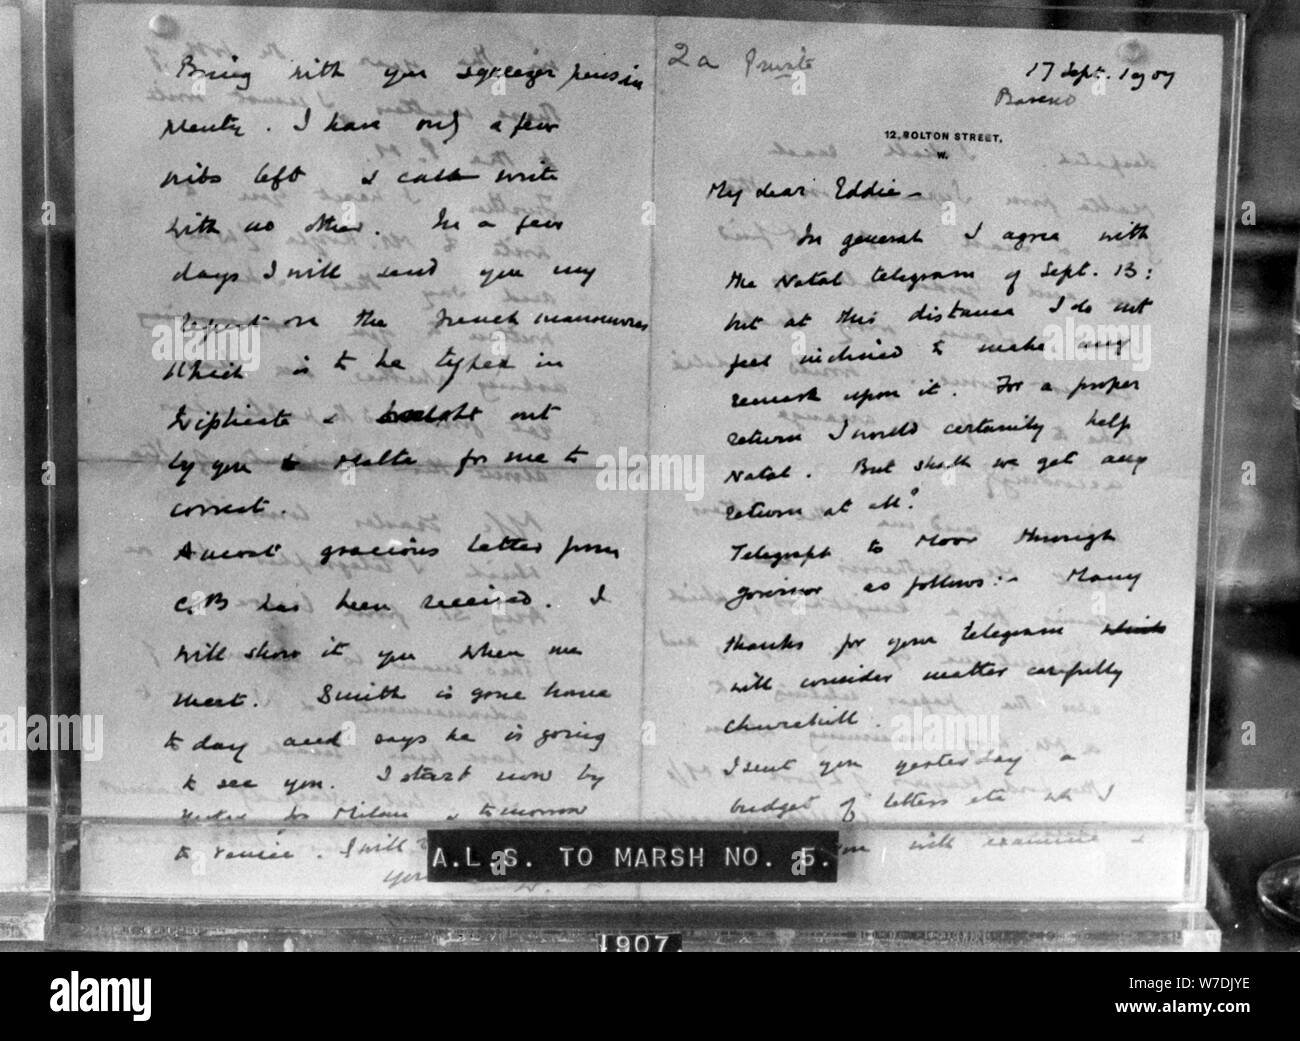 2a Private
17 Sept. 1907
Baveno
12, BOLTON STREET,
W.
My dear Eddie -
In general I agree with
the Natal telegram of Sept. 13:
but at this distance I do not
feel inclined to make any
remark upon it. For a proper
return I would certainly help
Natal. But shall we get any
return at all?
Telegraph to Moor through
governor as follows:- Many
thanks for your telegram which
will consider matter carefully
Churchill.
I sent you yesterday a
budget of letters etc wh I
will examine &
Bring with you squeezer pens in
plenty. I have only a few
nibs left & can write
with no other. In a few
days I will send you my
report on the french manoeuvres
which is to be typed in
triplicate & brought out
by you to Malta for me to
correct.
A most gracious letter from
C.B has been received. I
will show it you when we
meet. Smith is gone home
to day and says he is going
to see you. I start now by
motor for Milan & tomorrow
to Venice. I will
A.L.S. TO MARSH NO. 5.
1907.
alamy
W7DJYE
www.alamy.com